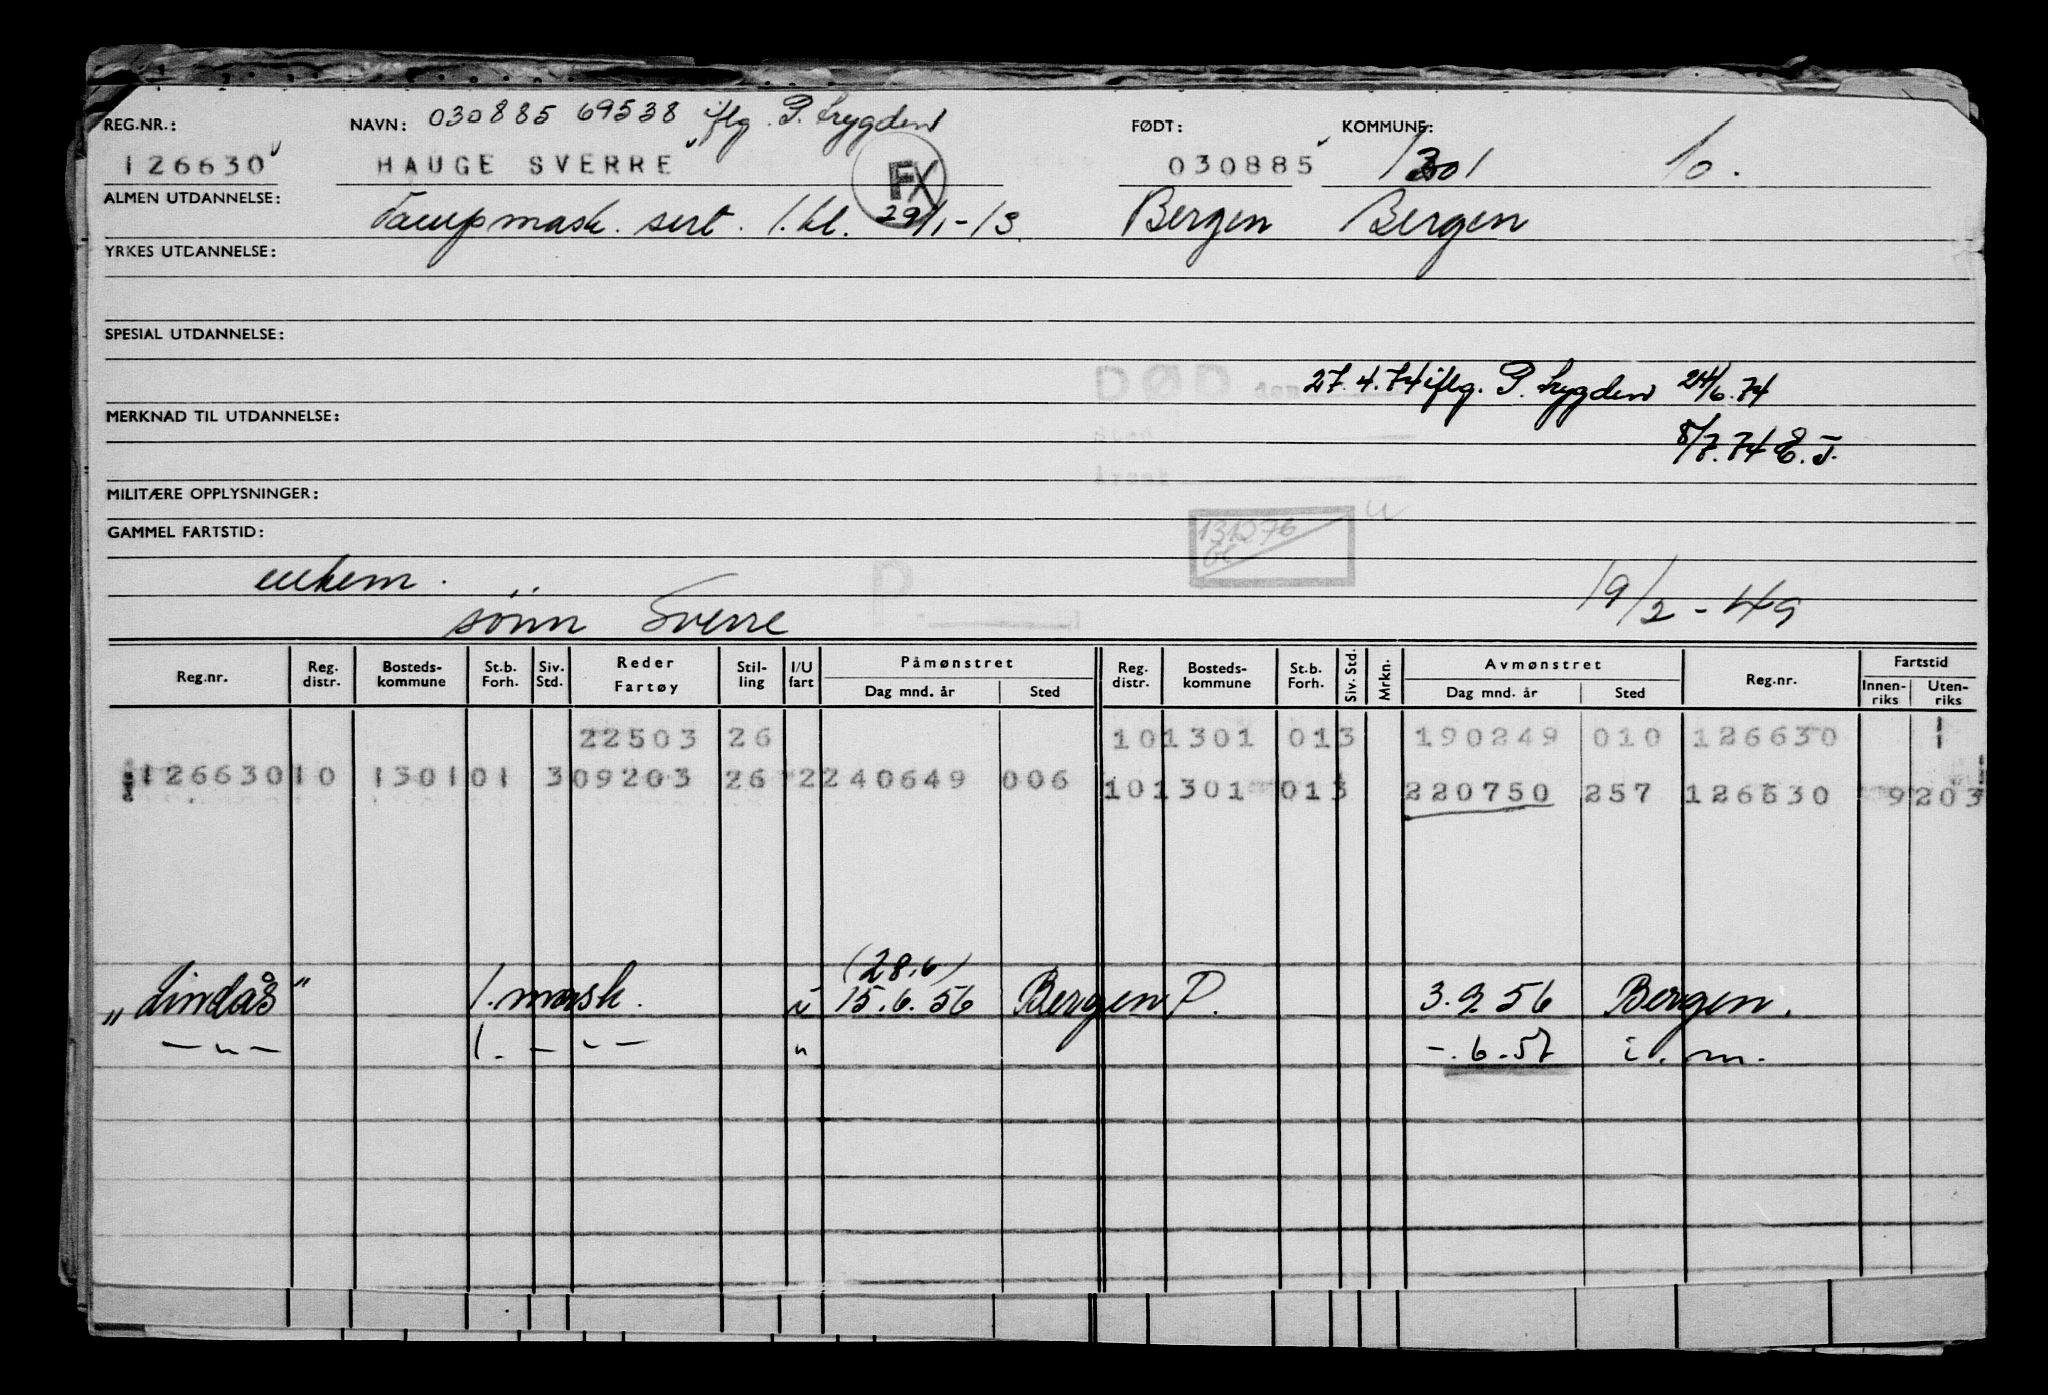 REG.NR.: NAVN: 030885 69538 iflg. P. Trygden FØDT: KOMMUNE:
126630 HAUGE SVERRE FX 030885 1301 10.
ALMEN UTDANNELSE: Dampmask. sert. 1.kl. 29/1-13 Bergen Bergen
YRKES UTDANNELSE:
SPESIAL UTDANNELSE:
DØD den 27.4.74 iflg. P. Trygden 24/6.74
MERKNAD TIL UTDANNELSE:
8/7.74 E.J.
MILITÆRE OPPLYSNINGER:
131276
GAMMEL FARTSTID:
enkem.
sønn Sverre 19/2-49
Reg.nr. Reg. distr. Bosteds-kommune St.b. Forh. Siv. Std. Reder Fartøy Stil-ling I/U fart Påmønstret Dag mnd. år Sted Reg. distr. Bosteds-kommune St.b. Forh. Siv. Std. Mrkn. Avmønstret Dag mnd. år Sted Reg.nr. Fartstid Innen-riks Uten-riks
22503 26 10 1301 01 3 190249 010 126630
126630 10 1301 01 3 09203 26 2 240649 006 10 1301 01 3 220750 257 126630 9203
(28.6)
„Lindås" 1. mask. u 15.6.56 Bergen P. 3.9.56 Bergen.
—„— 1. —„— " -.6.57 i.m.